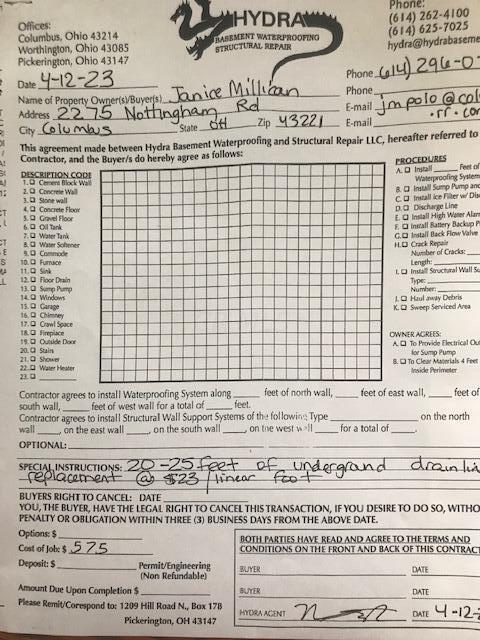 Offices:
Columbus, Ohio 43214
Worthington, Ohio 43085
Pickerington, Ohio 43147
HYDRA
BASEMENT WATERPROOFING
STRUCTURAL REPAIR
Phone:
(614) 262-4100
(614) 625-7025
hydra@hydrabaseme
Date 4-12-23
Phone (614) 296-0
Name of Property Owner(s)/Buyer(s) Janice Millican
Phone
Address 2275 Nottingham Rd
E-mail jmpolo@col
.rr.com
City Columbus State OH Zip 43221 E-mail
This agreement made between Hydra Basement Waterproofing and Structural Repair LLC, hereafter referred to
Contractor, and the Buyer/s do hereby agree as follows:
DESCRIPTION CODE
1. Cement Block Wall
2. Concrete Wall
3. Stone wall
4. Concrete Floor
5. Gravel Floor
6. Oil Tank
7. Water Tank
8. Water Softener
9. Commode
10. Furnace
11. Sink
12. Floor Drain
13. Sump Pump
14. Windows
15. Garage
16. Chimney
17. Crawl Space
18. Fireplace
19. Outside Door
20. Stairs
21. Shower
22. Water Heater
23.
PROCEDURES
A. Install Feet of
Waterproofing System
B. Install Sump Pump and
C. Install Ice Filter w/Dis
D. Discharge Line
E. Install High Water Alar
F. Install Battery Backup P
G. Install Back Flow Valve
H. Crack Repair
Number of Cracks:
Length:
I. Install Structural Wall Su
Type:
Number:
J. Haul away Debris
K. Sweep Serviced Area
OWNER AGREES:
A. To Provide Electrical Out
for Sump Pump
B. To Clear Materials 4 Feet
Inside Perimeter
Contractor agrees to install Waterproofing System along feet of north wall, feet of east wall, feet of
south wall, feet of west wall for a total of feet.
Contractor agrees to install Structural Wall Support Systems of the following Type on the north
wall , on the east wall , on the south wall , on the west wall for a total of .
OPTIONAL:
SPECIAL INSTRUCTIONS: 20-25 feet of underground drain lin
replacement @ $23/linear foot
BUYERS RIGHT TO CANCEL: DATE
YOU, THE BUYER, HAVE THE LEGAL RIGHT TO CANCEL THIS TRANSACTION, IF YOU DESIRE TO DO SO, WITHO
PENALTY OR OBLIGATION WITHIN THREE (3) BUSINESS DAYS FROM THE ABOVE DATE.
Options: $
Cost of Job: $ 575
Deposit: $ Permit/Engineering
(Non Refundable)
Amount Due Upon Completion $
Please Remit/Corespond to: 1209 Hill Road N., Box 178
Pickerington, OH 43147
BOTH PARTIES HAVE READ AND AGREE TO THE TERMS AND
CONDITIONS ON THE FRONT AND BACK OF THIS CONTRACT
BUYER DATE
BUYER DATE
HYDRA AGENT DATE 4-12-2